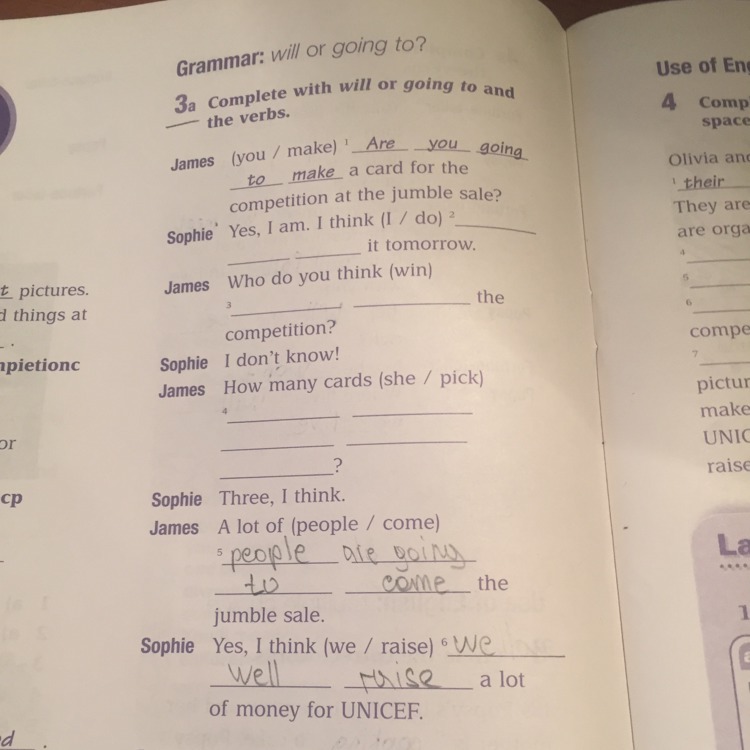 Grammar: will or going to?
3a Complete with will or going to and
the verbs.
James (you / make) ¹ Are you going
to make a card for the
competition at the jumble sale?
Sophie Yes, I am. I think (I / do) ²
it tomorrow.
James Who do you think (win)
³ the
competition?
Sophie I don't know!
James How many cards (she / pick)
⁴
?
Sophie Three, I think.
James A lot of (people / come)
⁵ people are going
to come the
jumble sale.
Sophie Yes, I think (we / raise) ⁶ we
well raise a lot
of money for UNICEF.
t pictures.
d things at
.
mpietionc
or
cp
d .
Use of Eng
4 Comp
space
Olivia and
¹ their
They are
are orga
⁴
⁵
⁶
compe
⁷
pictur
make
UNIC
raise
La
1